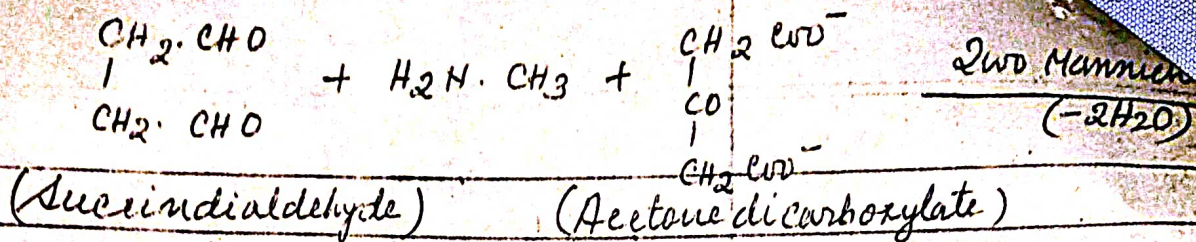 CH2. CHO
|
CH2. CHO
+ H2N. CH3 +
CH2 COO⁻
|
CO
|
CH2 COO⁻
Two
(-2H2O)
(Succindialdehyde) (Acetone dicarboxylate)